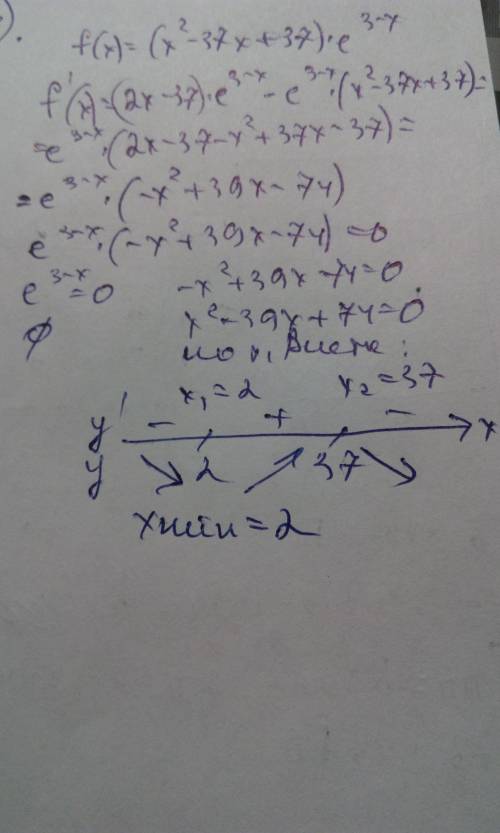 ).
f(x) = (x²-37x+37)·e^(3-x)
f'(x) = (2x-37)·e^(3-x) - e^(3-x)·(x²-37x+37) =
= e^(3-x)·(2x-37-x²+37x-37) =
= e^(3-x)·(-x²+39x-74)
e^(3-x)·(-x²+39x-74) = 0
e^(3-x) = 0 -x²+39x-74=0
∅ x²-39x+74=0
по т. Виета:
x₁=2 x₂=37
y' - + - x
y ↘ 2 ↗ 37 ↘
xмin = 2